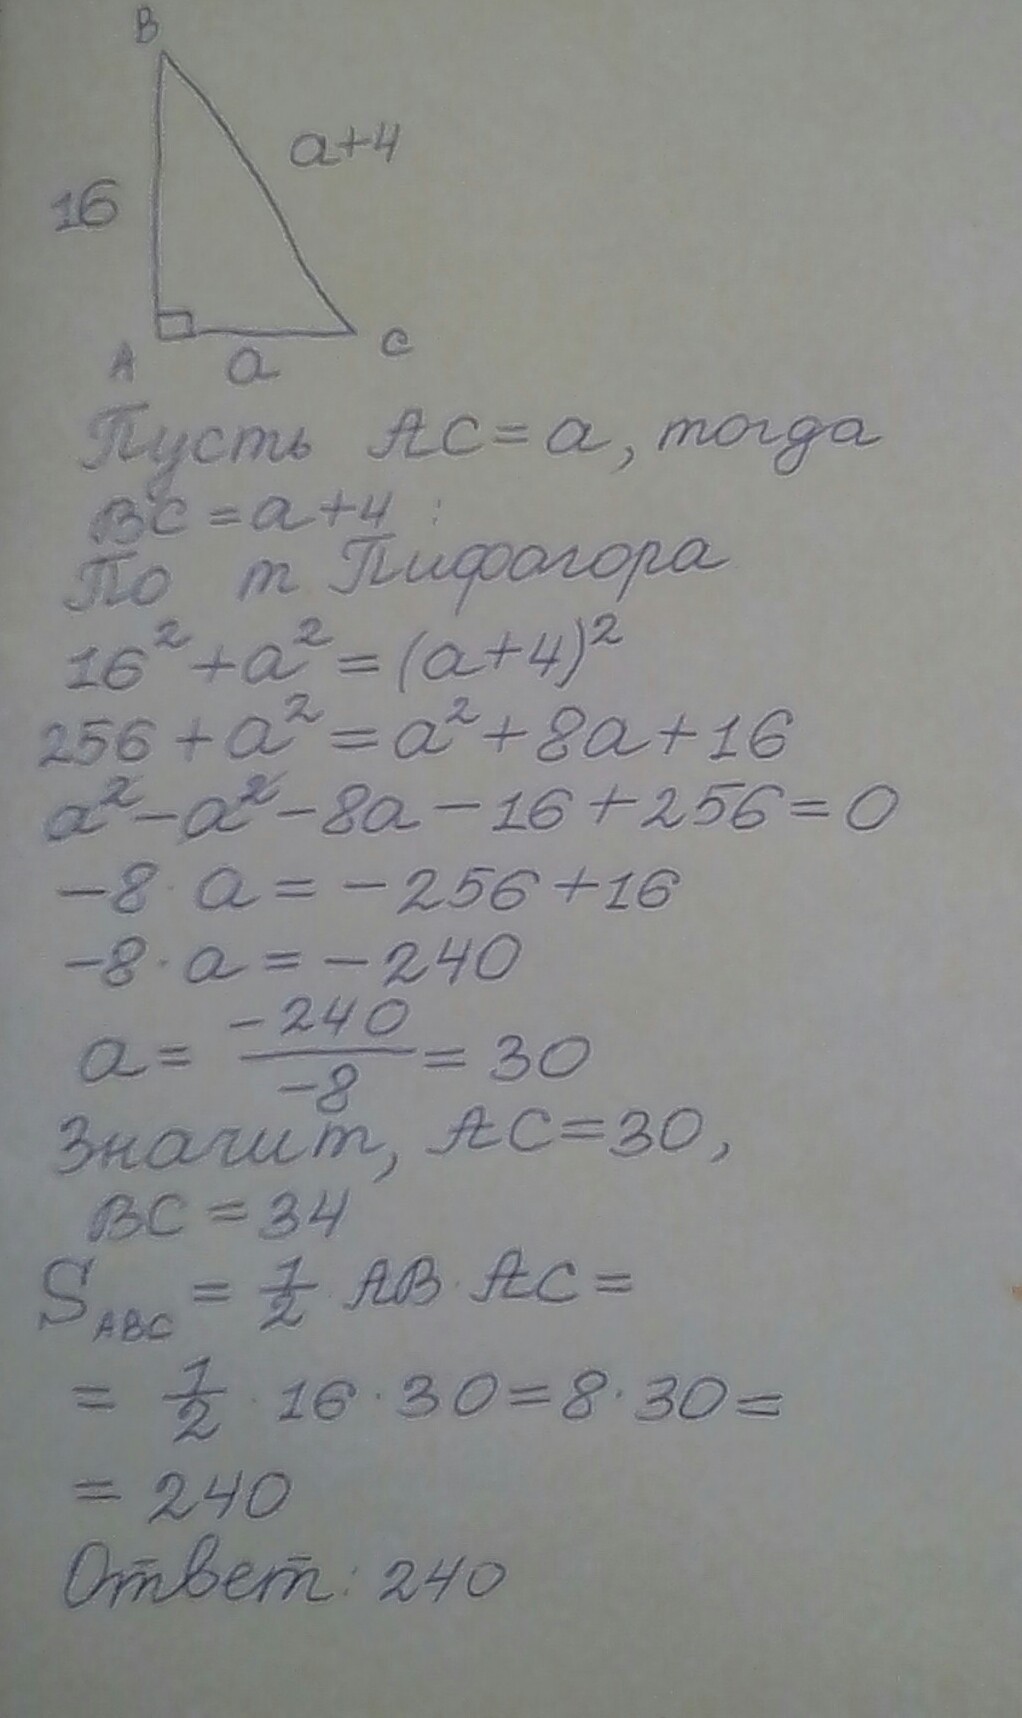 B
a+4
16
A
a
C
Пусть AC=a, тогда
BC=a+4
По т Пифагора
16²+a²=(a+4)²
256+a²=a²+8a+16
a²-a²-8a-16+256=0
-8·a=-256+16
-8·a=-240
a= -240/-8 =30
Значит, AC=30,
BC=34
S_ABC = 1/2·AB·AC=
= 1/2·16·30=8·30=
= 240
Ответ: 240